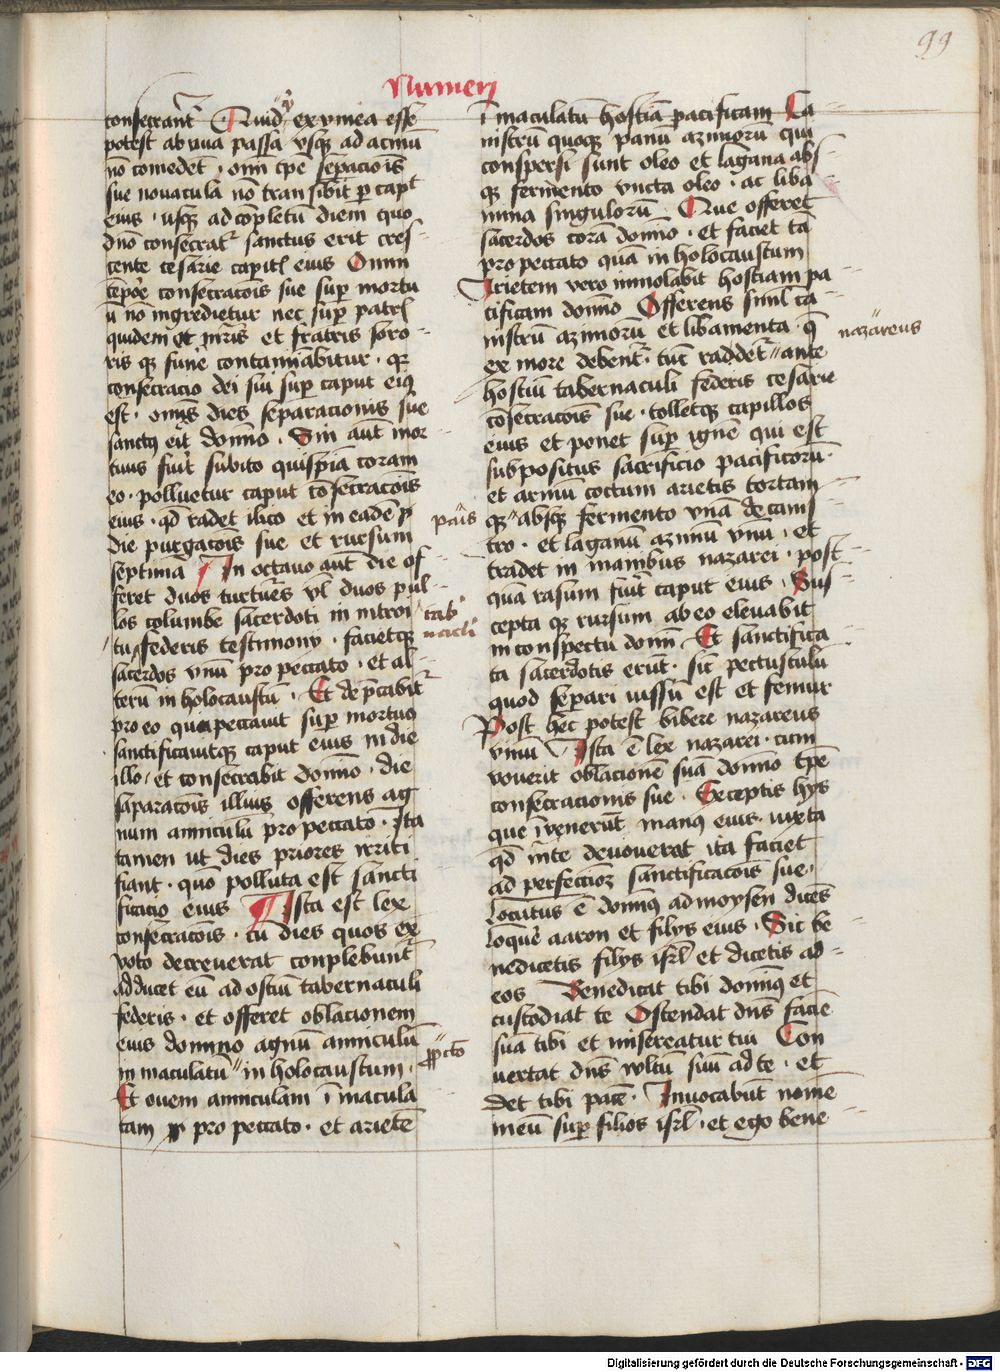 99
Numeri
consecrant᷑ Quid᷑ ex vinea esse
potest ab vua passa vsqꝫ ad acinū
nō comedet · omī tꝑe seꝑacōis
sue nouacula nō transibit ꝑ capt᷑
eius · usqꝫ ad cōpletū diem quo
dn̄o consecrat᷑ sanctus erit cres⸗
cente cesarie capit᷑ eius Omni
tēpoꝛe consecracōis sue suꝑ mortu
ū nō ingredietur nec suꝑ patris
quidem et mr̄is et fratris soro
ris qꝫ fune᷑ contamīabitur · qꝛ
consecracio dei sui suꝑ caput eiꝰ
est · omīs dies seꝑacionis sue
sanctꝰ eit᷑ domīo · Sin aut̄ mor
tuus fuit᷑ subito quispiā coram
eo · polluetur caput cōsecracōis
eius · qd̄ radet ilico et in eadē ꝑ
die purgacōis sue et rursum
septima In octauo aut̄ die of
feret duos turtures vl᷑ duos pul
los columbe sacerdoti in introi
tu federis testimony · facietqꝫ
sacerdos vnū pro peccato · et al⸗
terū in holocaustū · Et dep̄cabit᷑
pro eo quia peccauit suꝑ mortuo
sanctificauitqꝫ caput eius in die
illo · et consecrabit domīo · die
saparacōis illius offerens ag
num anniculū pro peccato · Ita
tamen ut dies priores irriti
fiant · quō polluta est sancti
ficacio eius Ista est lex
consecracōis · cū dies quos ex
voto decreuerat conplebunt᷑
adducet eū ad ostiū tabernaculi
federis · et offeret oblacionem
eius domino agnū anniculū
in maculatū〃 in holocaustum ·
Et ouem anniculam ī macula
tam pro peccato · et arietē
panis
tab᷑
nacli᷑
ꝓ pcc̄to
ī maculatū hostiā pacificam Ca
nistrū quoqꝫ panū azimorū qui
conspersi sunt oleo et lagana abs
qꝫ fermento vncta oleo · ac liba
mina singulorū Que offeret
sacerdos corā domīo · et faciet tā
pro peccato quā in holocaustum
Arietem vero immolabit hostiam pa
cificam domīo Offerens siml᷑ ca
nistrū azimorū et libamenta · q̄
ex more debent᷑ · tūc raddet᷑〃 ante
hostiū tabernaculi federis cesarie
cōsecracōis sue · tolletqꝫ capillos
eius et ponet suꝑ ignē qui est
subpositus sacrificio pacificorū ·
et armū coctum arietis tortam
qꝫ〃 absqꝫ fermento vnā de canis
tro · et laganū azimū vnū · et
tradet in manibus nazarei · post
quā rasum fuit᷑ caput eius · Sus
cepta qꝫ rursum ab eo eleuabit
in conspectu domī Et sanctifica
ta sacerdotis erūt · sic᷑ pectusculū
quod seꝑari iussū est et femur
Post hec potest bibere nazareus
vinū Ista ē lex nazarei · cum
vouerit oblacionē suā domīo tꝑe
consecracionis sue · Exceptis hys
que īvenerūt manꝰ eius · iuxta
qd̄ mēte deuouerat ita faciet
ad perfectioꝫ sanctificacōis sue ·
Locutus ē domīꝰ ad moysen dicēs
Loquē᷑ aaron et filys eius · Sic be
nedicetis filys isrl᷑ et dicetis ad⸗
eos Benedicat tibi domīꝰ et
custodiat te Ostendat dn̄s faciē
suā tibi et misereatur tui Con
uertat dn̄s vultū suū ad te · et
det tibi pacē · Inuocabūt nomē
meū suꝑ filios isrl᷑ · et ego bene
nazareus
Digitalisierung gefördert durch die Deutsche Forschungsgemeinschaft - DFG